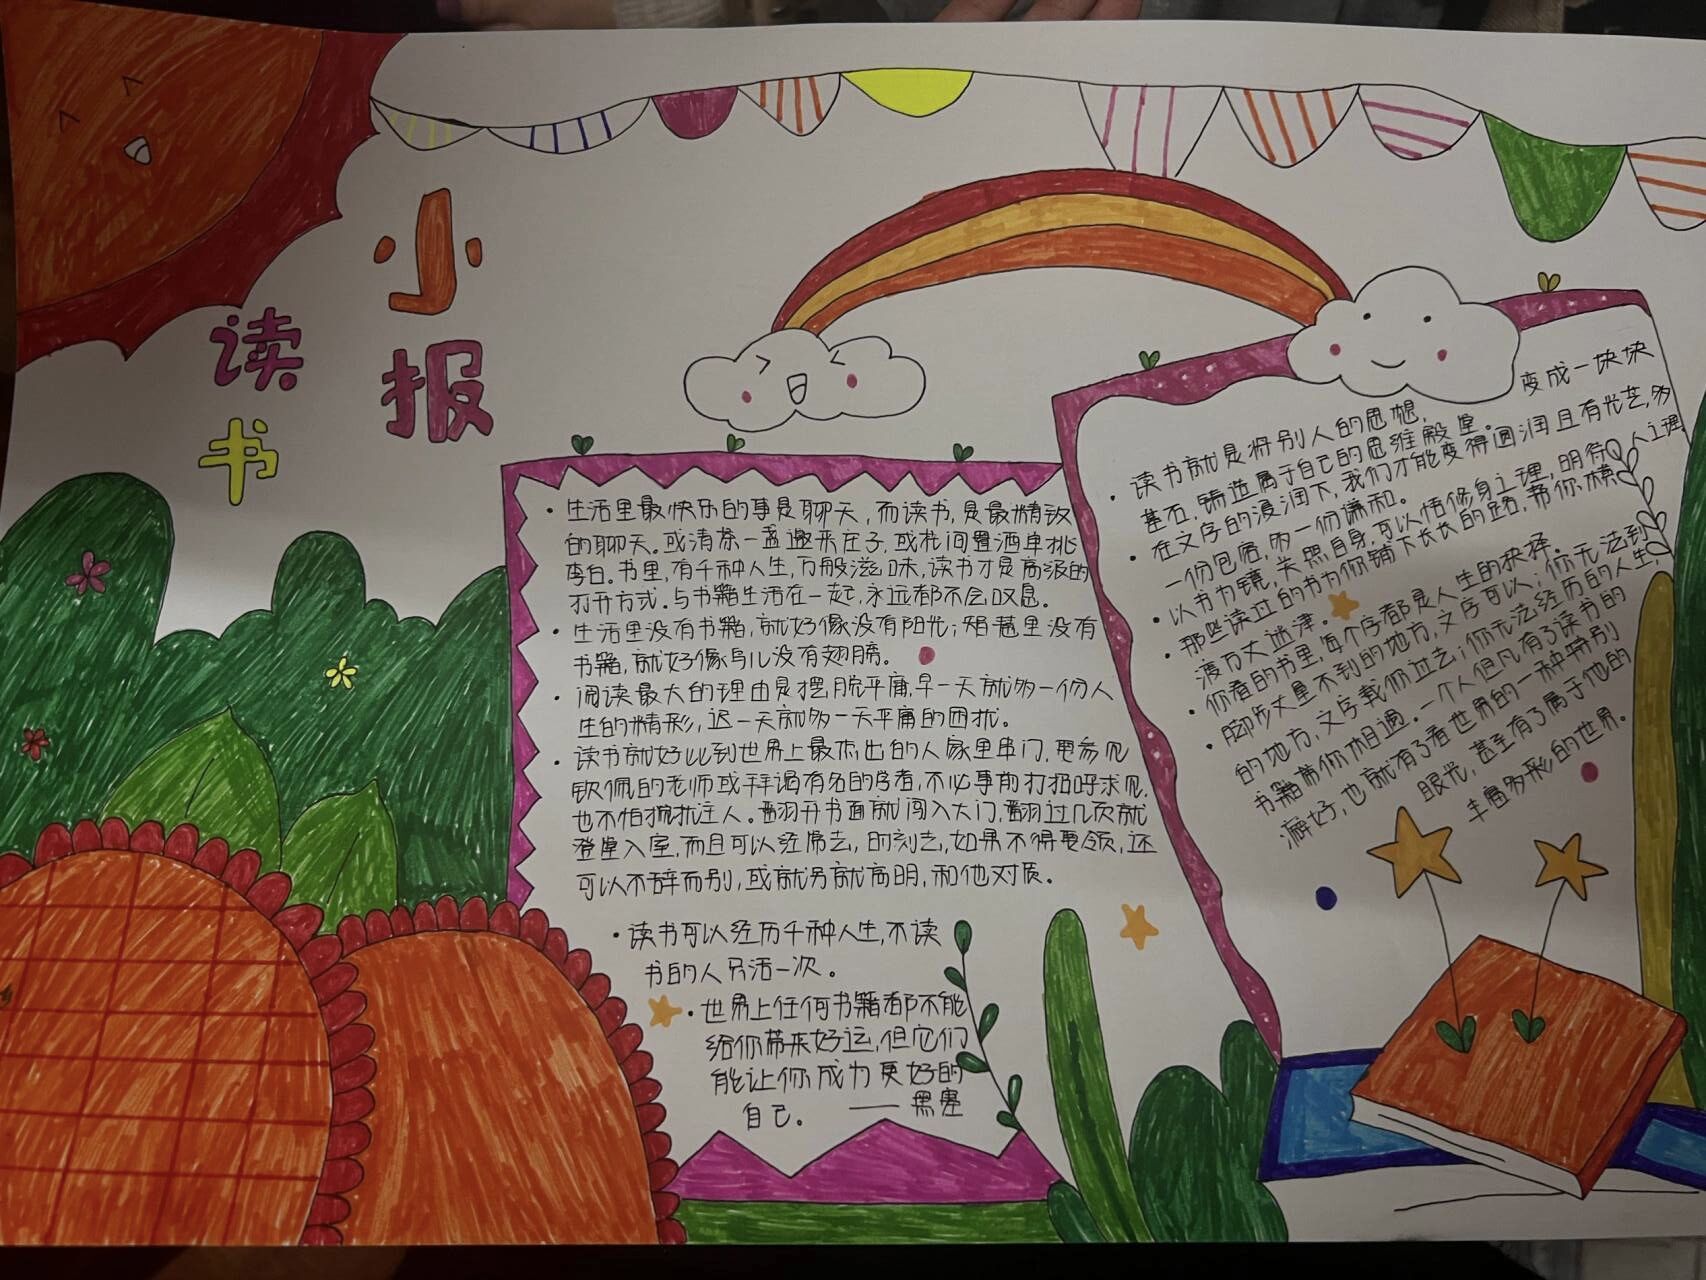 读书
小报
·生活里最快乐的事是聊天,而读书,是最精致
的聊天。或清茶一盏邀来庄子,或花间置酒单挑
李白。书里,有千种人生,万般滋味,读书才是高级的
打开方式。与书籍生活在一起,永远都不会叹息。
·生活里没有书籍,就好像没有阳光;智慧里没有
书籍,就好像鸟儿没有翅膀。
·阅读最大的理由是摆脱平庸,早一天就多一份人
生的精彩,迟一天就多一天平庸的困扰。
·读书就好比到世界上最杰出的人家里串门,要参见
钦佩的老师或拜谒有名的学者,不必事前打招呼求见,
也不怕搅扰主人。翻开书面就闯入大门,翻过几页就
登堂入室,而且可以经常去,时刻去,如果不得要领,还
可以不辞而别,或就另就高明,和他对质。
·读书可以经历千种人生,不读
书的人只活一次。
·世界上任何书籍都不能
给你带来好运,但它们
能让你成为更好的
自己。——黑塞
·读书就是将别人的思想,变成一块块
基石,铸造属于自己的思维殿堂。
·在文字的浸润下,我们才能变得圆润且有光芒,多
一份包容,多一份谦和。
·以书为镜,关照自身,可以悟修身之理,明待人之理
那些读过的书为你铺下长长的路,帮你横
渡万丈迷津。
·你看的书里,每个字都是人生的抉择。
·脚步丈量不到的地方,文字可以;你无法到
的地方,文字载你过去;你无法经历的人生,
书籍带你相遇。一个人但凡有了读书的
癖好,也就有了看世界的一种特别
眼光,甚至有了属于他的
丰富多彩的世界。